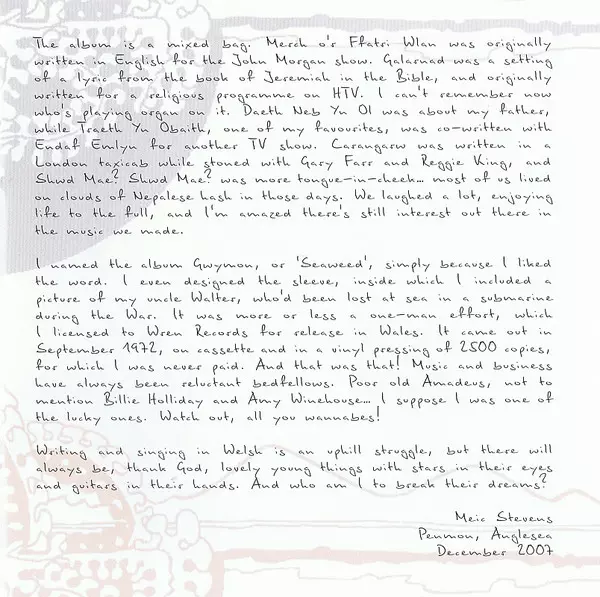 The album is a mixed bag. Merch o'r Ffatri Wlan was originally
written in English for the John Morgan show. Galarnad was a setting
of a lyric from the book of Jeremiah in the Bible, and originally
written for a religious programme on HTV. I can't remember now
who's playing organ on it. Daeth Neb Yn Ol was about my father,
while Traeth Yn Obaith, one of my favourites, was co-written with
Endaf Emlyn for another TV show. Carangarw was written in a
London taxicab while stoned with Gary Farr and Reggie King, and
Shwd Mae? Shwd Mae? was more tongue-in-cheek... most of us lived
on clouds of Nepalese hash in those days. We laughed a lot, enjoying
life to the full, and I'm amazed there's still interest out there in
the music we made.

I named the album Gwymon, or 'Seaweed', simply because I liked
the word. I even designed the sleeve, inside which I included a
picture of my uncle Walter, who'd been lost at sea in a submarine
during the War. It was more or less a one-man effort, which
I licensed to Wren Records for release in Wales. It came out in
September 1972, on cassette and in a vinyl pressing of 2500 copies,
for which I was never paid. And that was that! Music and business
have always been reluctant bedfellows. Poor old Amadeus, not to
mention Billie Holliday and Amy Winehouse... I suppose I was one of
the lucky ones. Watch out, all you wannabes!

Writing and singing in Welsh is an uphill struggle, but there will
always be, thank God, lovely young things with stars in their eyes
and guitars in their hands. And who am I to break their dreams?

Meic Stevens
Penmon, Anglesea
December 2007